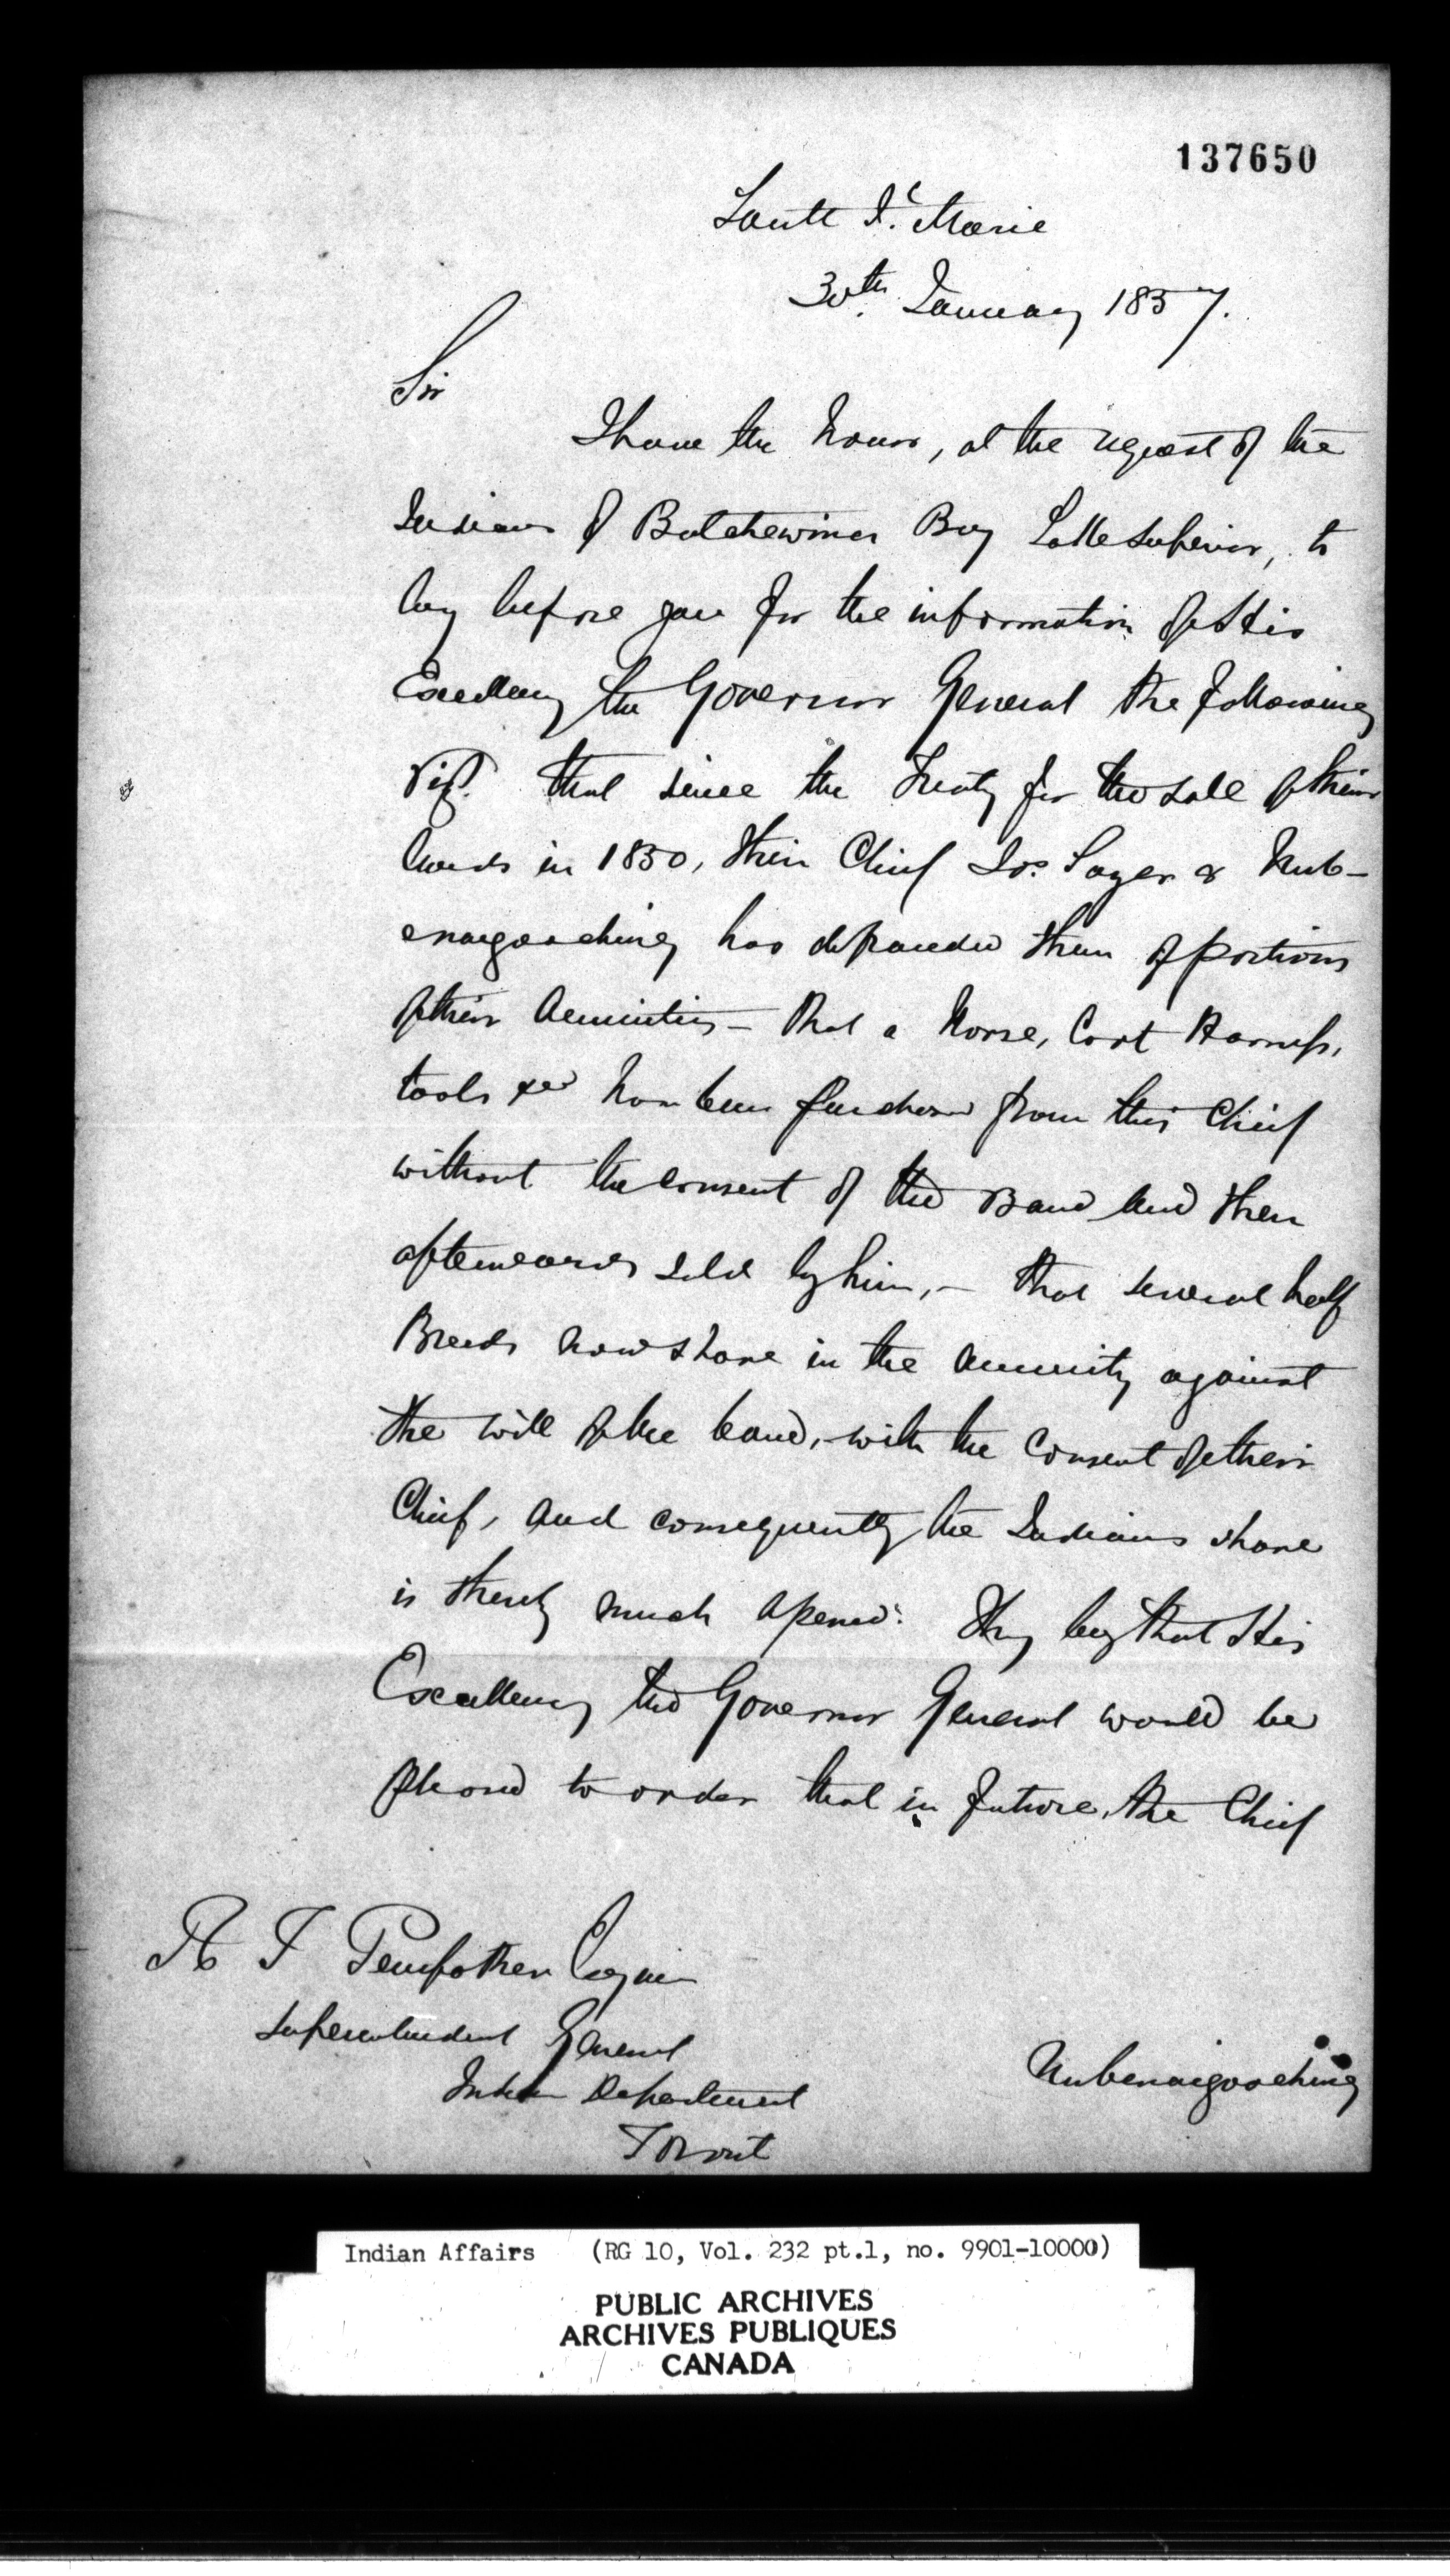 137650
Sault St. Marie
30th January 1857.
Sir
I have the honor, at the request of the
Indians of Batchewina Bay Lake Superior, to
lay before you for the information of His
Excellency the Governor General the following
viz. that since the Treaty for the sale of their
lands in 1850, their Chief Jos. Sayer & Nub-
enaigooching has defrauded them of portions
of their annuities — that a Horse, Cart Harness,
tools &c has been purchased from this Chief
without the consent of the Band and then
afterwards sold by him, — that several half
Breeds now share in the annuity against
the will of the band, with the consent of their
Chief, and consequently the Indians share
is thereby much. They beg that His
Excellency the Governor General would be
pleased to order that in future, the Chief
R T Pennefather Esquire
Superintendent General
Indian Department
Toronto
Nubenaigooching
Indian Affairs (RG 10, Vol. 232 pt.1, no. 9901-10000)
PUBLIC ARCHIVES
ARCHIVES PUBLIQUES
CANADA